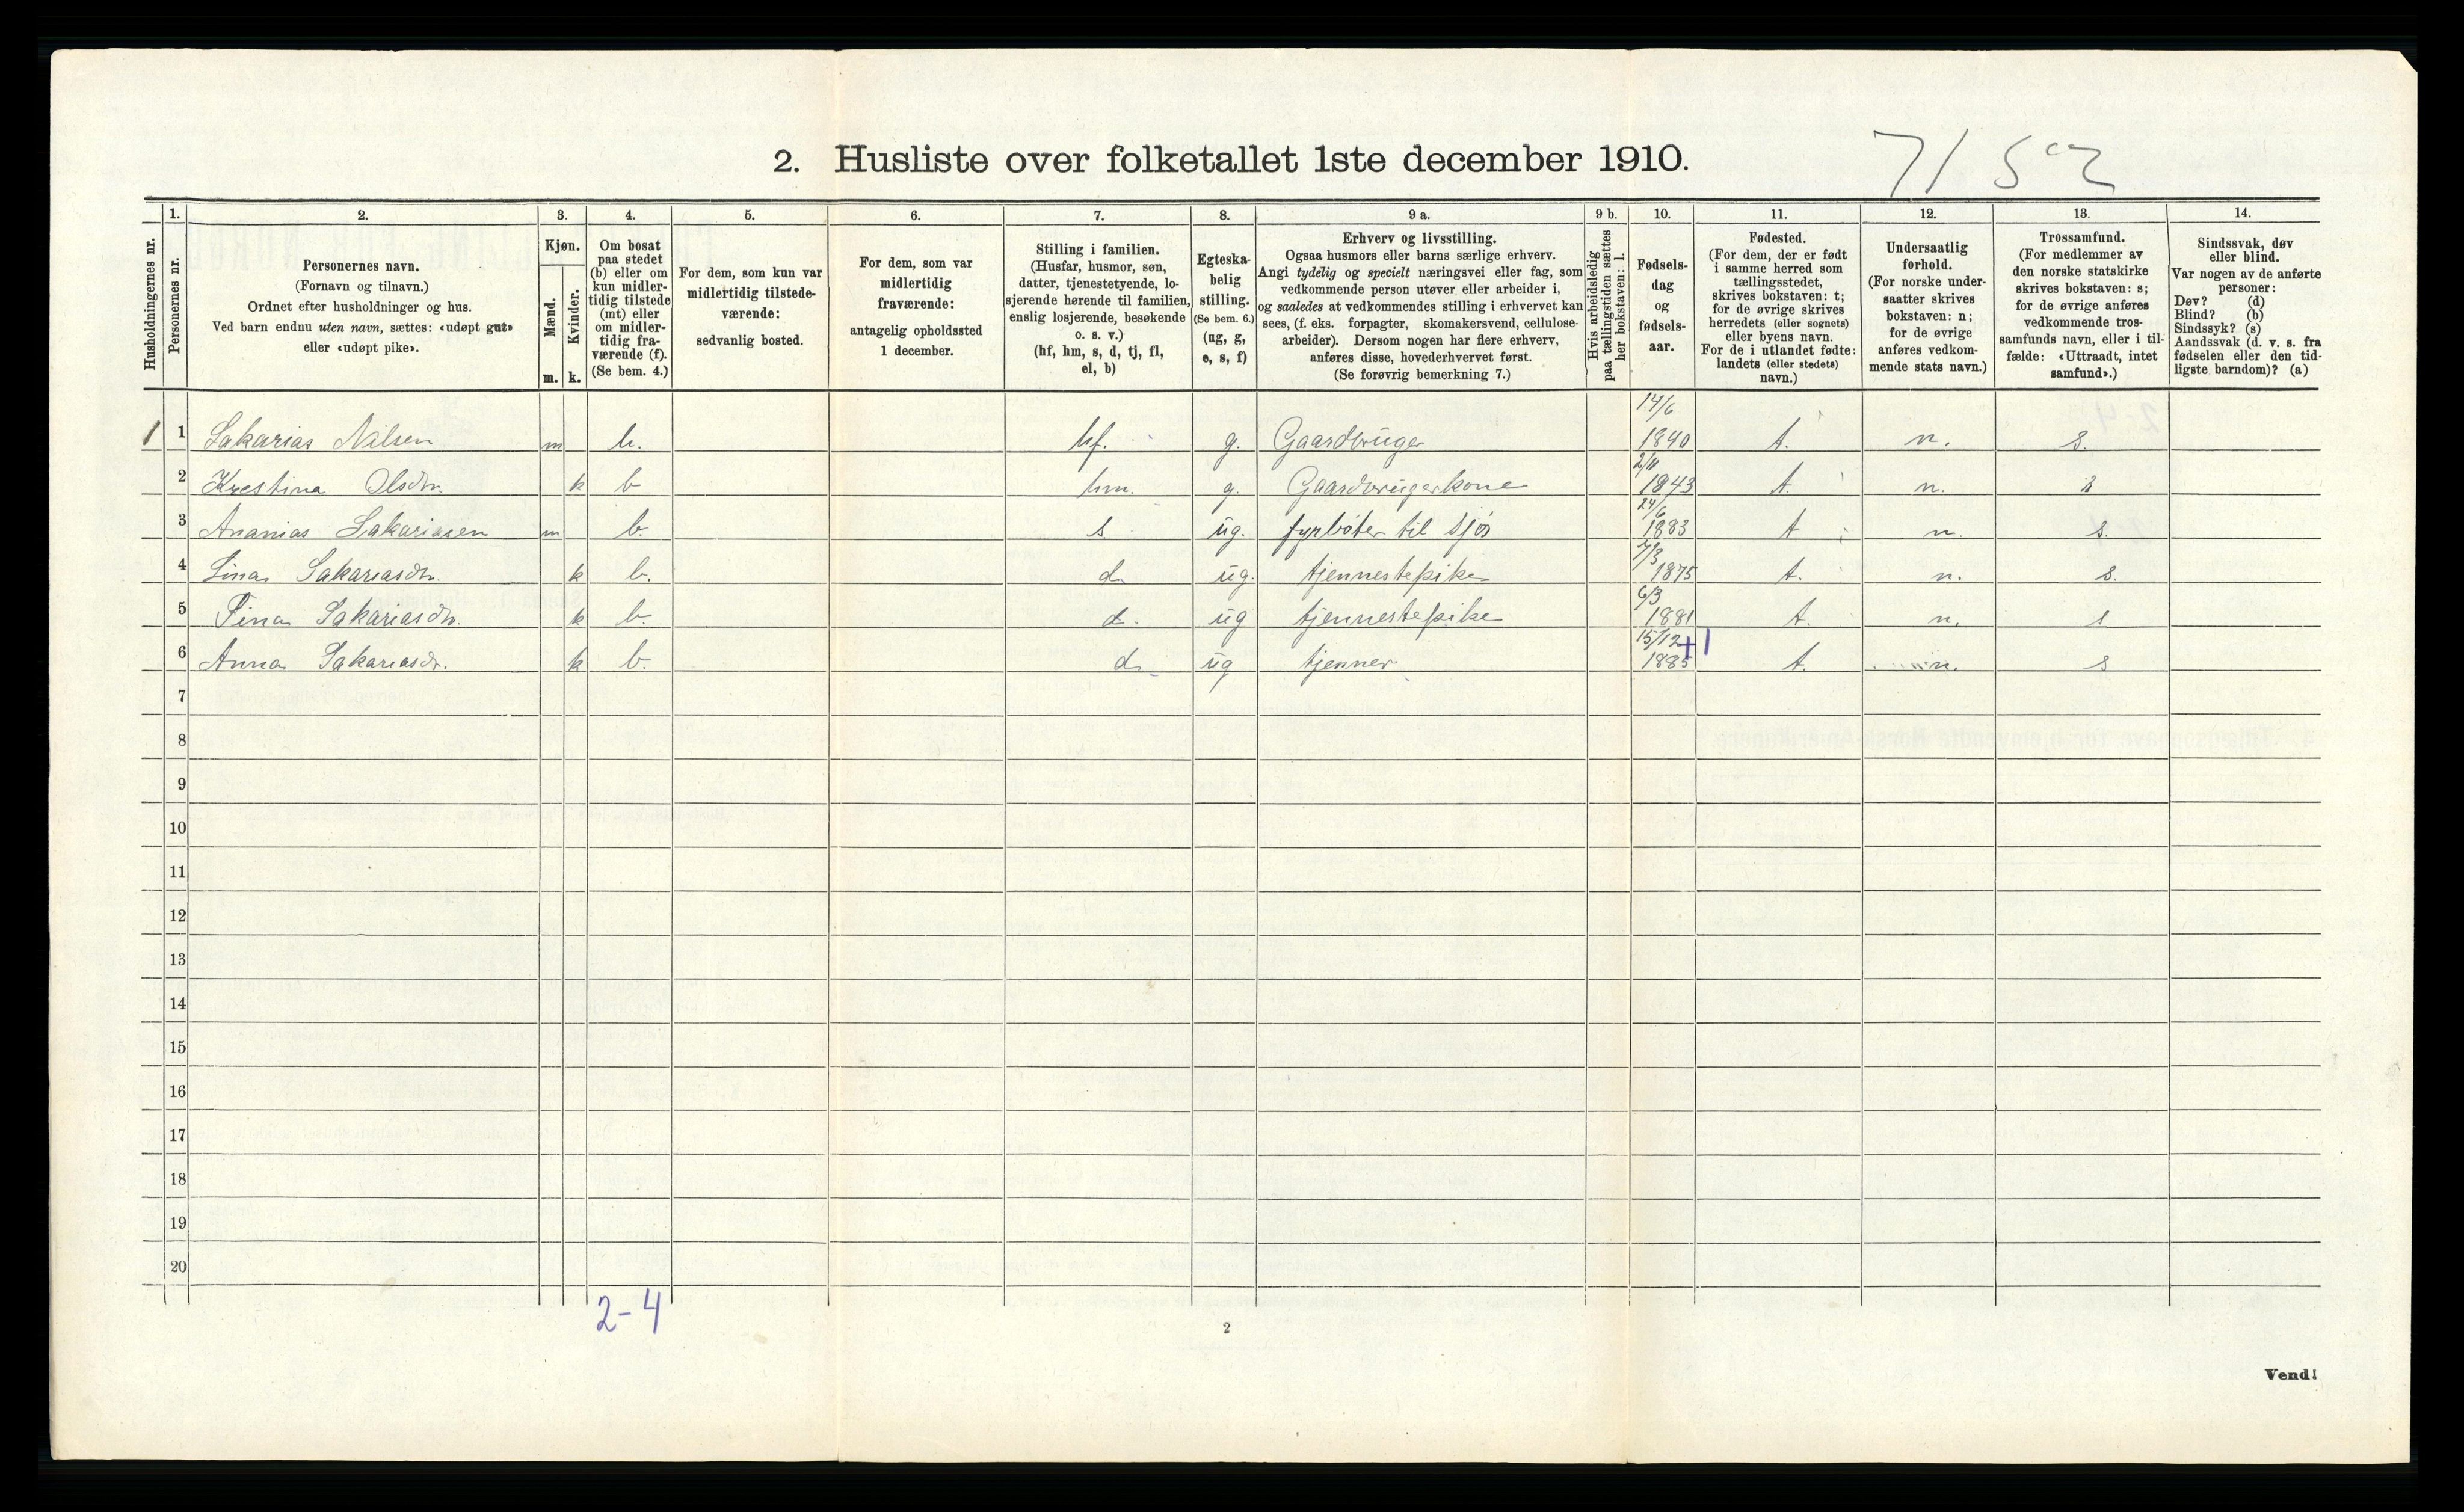 2. Husliste over folketallet 1ste december 1910.
Husholdningernes nr.
1. Personernes nr.
2. Personernes navn.
(Fornavn og tilnavn.)
Ordnet efter husholdninger og hus.
Ved barn endnu uten navn, sættes: «udøpt gut»
eller «udøpt pike».
3. Kjøn.
Mænd. m.
Kvinder. k.
4. Om bosat
paa stedet
(b) eller om
kun midler-
tidig tilstede
(mt) eller
om midler-
tidig fra-
værende (f).
(Se bem. 4.)
5. For dem, som kun var
midlertidig tilstede-
værende:
sedvanlig bosted.
6. For dem, som var
midlertidig
fraværende:
antagelig opholdssted
1 december.
7. Stilling i familien.
(Husfar, husmor, søn,
datter, tjenestetyende, lo-
sjerende hørende til familien,
enslig losjerende, besøkende
o. s. v.)
(hf, hm, s, d, tj, fl,
el, b)
8. Egteska-
belig
stilling.
(Se bem. 6.)
(ug, g,
e, s, f)
9 a. Erhverv og livsstilling.
Ogsaa husmors eller barns særlige erhverv.
Angi tydelig og specielt næringsvei eller fag, som
vedkommende person utøver eller arbeider i,
og saaledes at vedkommendes stilling i erhvervet kan
sees, (f. eks. forpagter, skomakersvend, cellulose-
arbeider). Dersom nogen har flere erhverv,
anføres disse, hovederhvervet først.
(Se forøvrig bemerkning 7.)
9 b. Hvis arbeidsledig
paa tællingstiden sættes
her bokstaven: l.
10. Fødsels-
dag
og
fødsels-
aar.
11. Fødested.
(For dem, der er født
i samme herred som
tællingsstedet,
skrives bokstaven: t;
for de øvrige skrives
herredets (eller sognets)
eller byens navn.
For de i utlandet fødte:
landets (eller stedets)
navn.)
12. Undersaatlig
forhold.
(For norske under-
saatter skrives
bokstaven: n;
for de øvrige
anføres vedkom-
mende stats navn.)
13. Trossamfund.
(For medlemmer av
den norske statskirke
skrives bokstaven: s;
for de øvrige anføres
vedkommende tros-
samfunds navn, eller i til-
fælde: «Uttraadt, intet
samfund».)
14. Sindssvak, døv
eller blind.
Var nogen av de anførte
personer:
Døv? (d)
Blind? (b)
Sindssyk? (s)
Aandssvak (d. v. s. fra
fødselen eller den tid-
ligste barndom)? (a)
1 1 Sakarias Nilsen m b. hf. g. Gaardbruger 14/6 1840 t. n. s.
2 Krestina Olsdtr. k b hm. g. Gaardbrugerkone 2/11 1843 t. n. s
3 Ananias Sakariasen m b. s. ug. fyrbøter til sjøs 24/6 1883 t n. s.
4 Lina Sakariasdtr. k b. d. ug. tjennestepike 7/3 1875 t. n. s.
5 Tina Sakariasdtr. k b. d. ug tjennestepike 6/3 1881 t. n. s
6 Anna Sakariasdtr. k b. d. ug tjener 15/12 1885 +1 t. n. s
7
8
9
10
11
12
13
14
15
16
17
18
19
20
2-4
2
Vend!